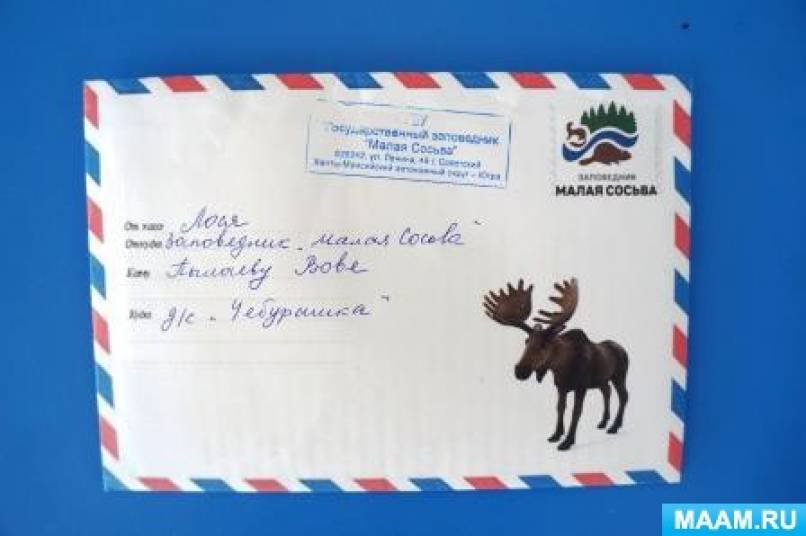 Государственный заповедник
"Малая Сосьва"
ул. Ленина, 46 г. Советский
Ханты-Мансийский автономный округ – Югра
ЗАПОВЕДНИК
МАЛАЯ СОСЬВА
От кого Лося
Откуда Заповедник „Малая Сосьва"
Кому Пылаеву Вове
Куда д/с „Чебурашка"
MAAM.RU